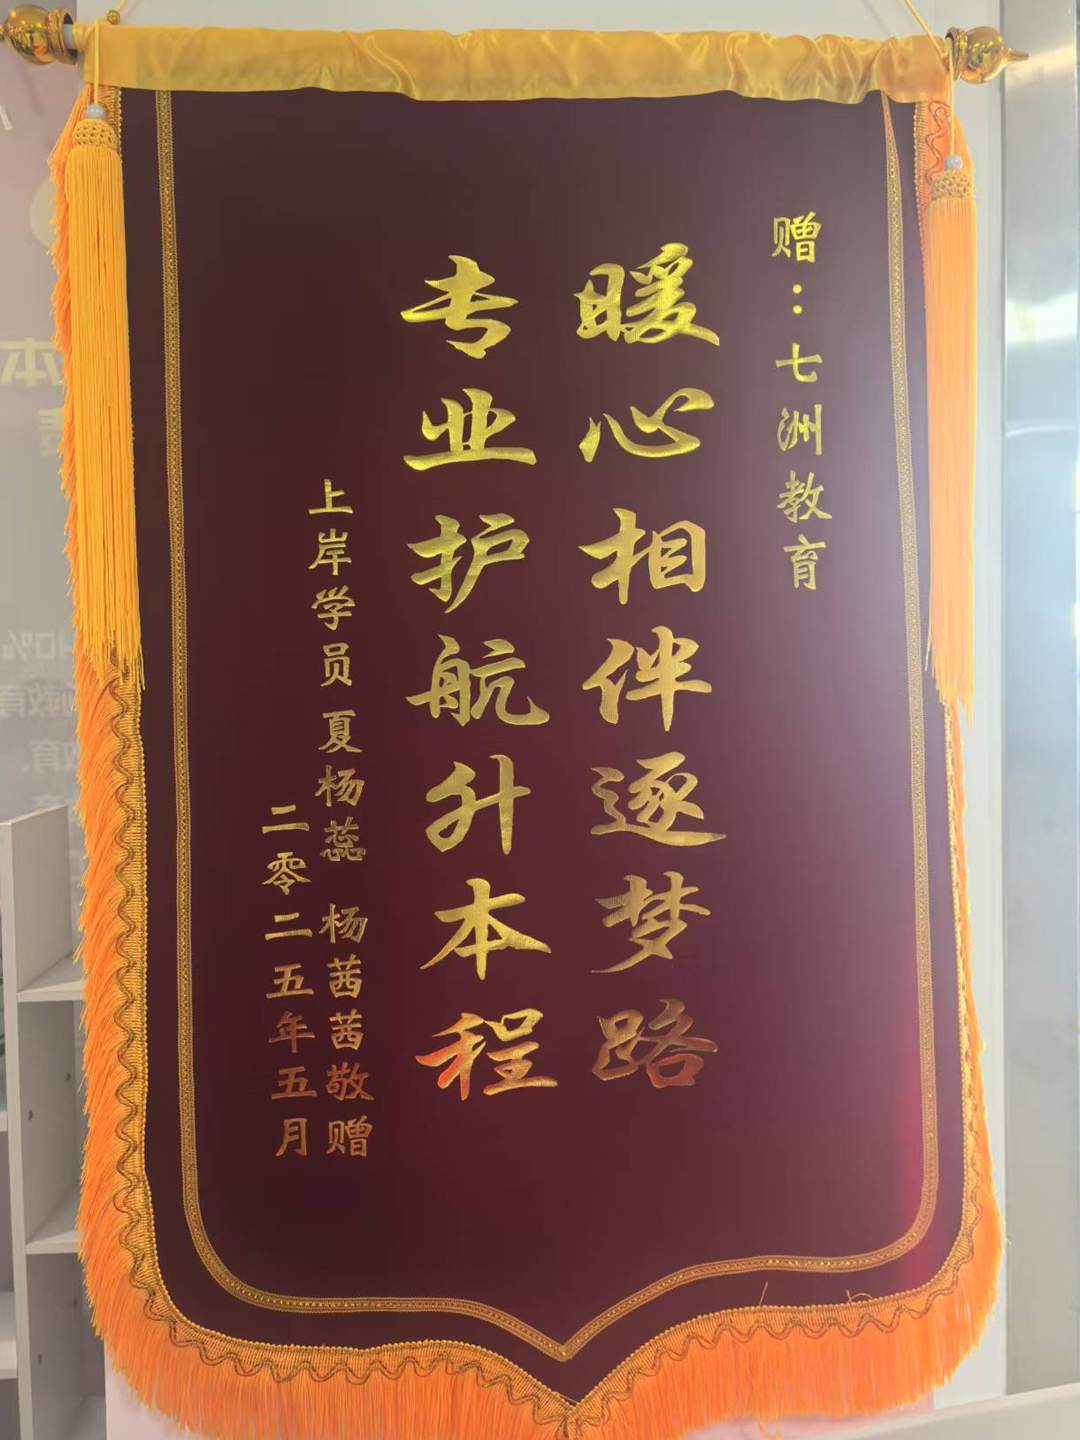 赠：七洲教育
暖心相伴逐梦路
专业护航升本程
上岸学员 夏杨蕊 杨茜茜敬赠
二零二五年五月